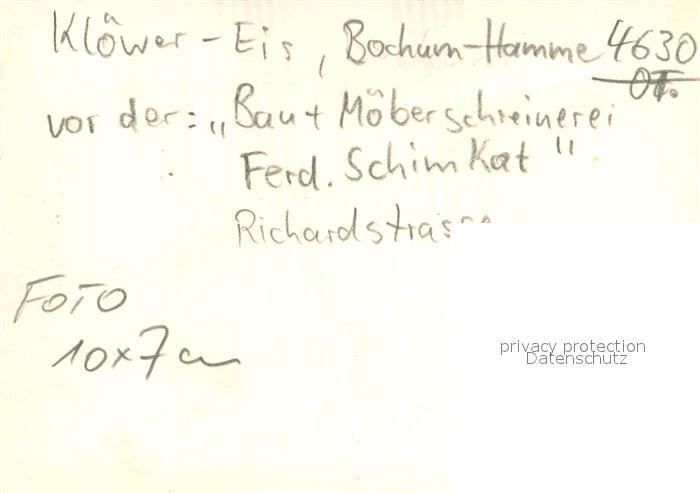 Klöwer-Eis, Bochum-Hamme 4630
OT.
vor der: „Bau + Möberschreinerei
Ferd. Schimkat"
Richardstrasse
FOTO
10x7cm
privacy protection
Datenschutz